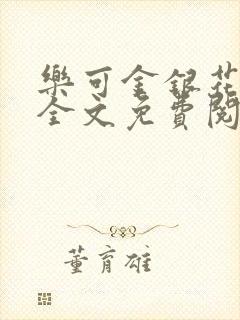 樂可金銀花
全文免費閱
董育雄